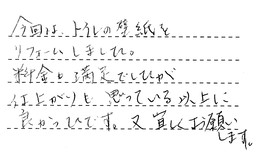 今回は、トイレの壁紙を
リフォームしました。
料金も満足でしたが
仕上がりも思っている以上に
良かったです。又宜しくお願い
します。